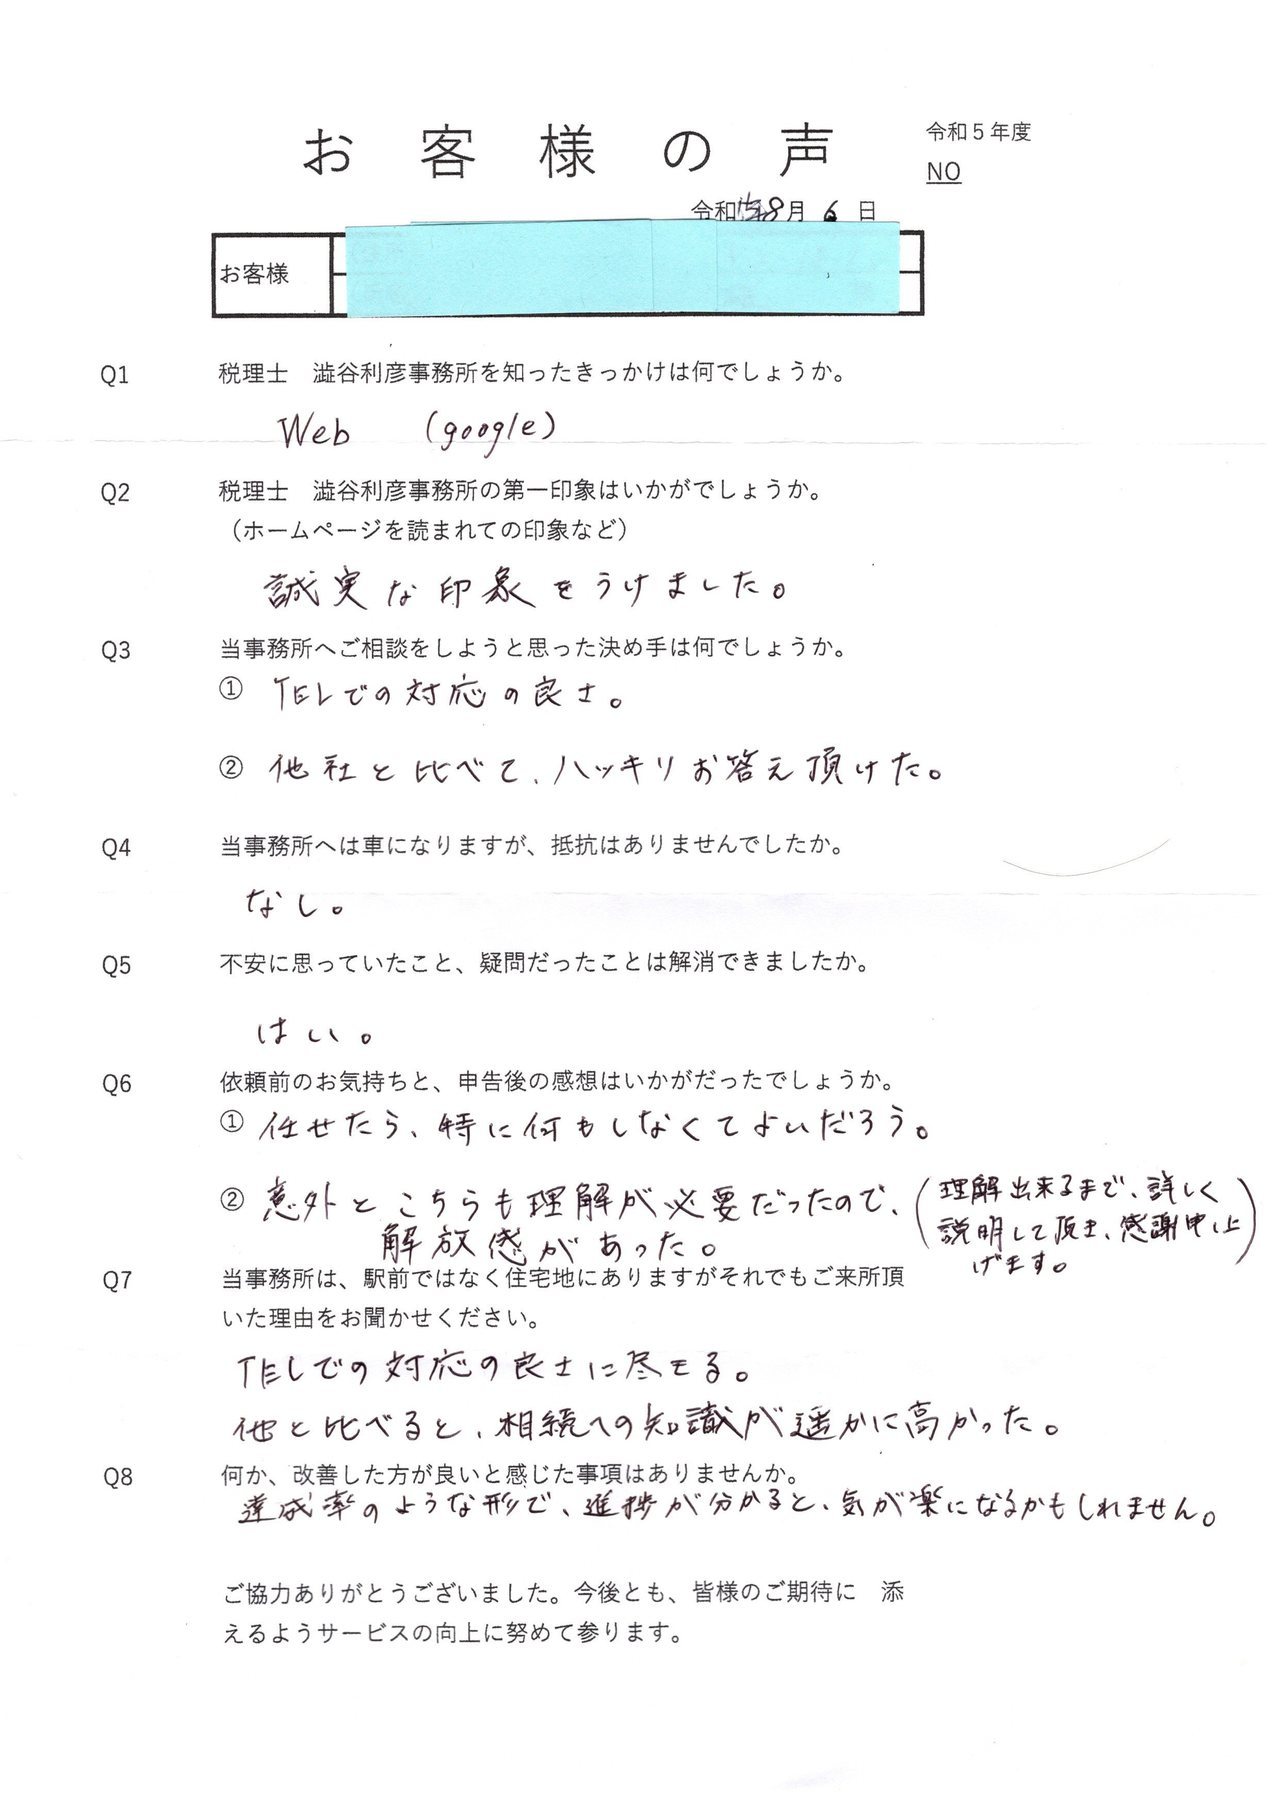 お客様の声
令和5年度
NO
令和 年8月6日
お客様
Q1 税理士　澁谷利彦事務所を知ったきっかけは何でしょうか。
Web (google)
Q2 税理士　澁谷利彦事務所の第一印象はいかがでしょうか。
（ホームページを読まれての印象など）
誠実な印象をうけました。
Q3 当事務所へご相談をしようと思った決め手は何でしょうか。
① TELでの対応の良さ。
② 他社と比べて、ハッキリお答え頂けた。
Q4 当事務所へは車になりますが、抵抗はありませんでしたか。
なし。
Q5 不安に思っていたこと、疑問だったことは解消できましたか。
はい。
Q6 依頼前のお気持ちと、申告後の感想はいかがだったでしょうか。
① 任せたら、特に何もしなくてよいだろう。
② 意外とこちらも理解が必要だったので、
解放感があった。
(理解出来るまで、詳しく
説明して頂き、感謝申し上
げます。)
Q7 当事務所は、駅前ではなく住宅地にありますがそれでもご来所頂
いた理由をお聞かせください。
TELでの対応の良さに尽きる。
他と比べると、相続への知識が遥かに高かった。
Q8 何か、改善した方が良いと感じた事項はありませんか。
達成率のような形で、進捗が分かると、気が楽になるかもしれません。
ご協力ありがとうございました。今後とも、皆様のご期待に　添
えるようサービスの向上に努めて参ります。